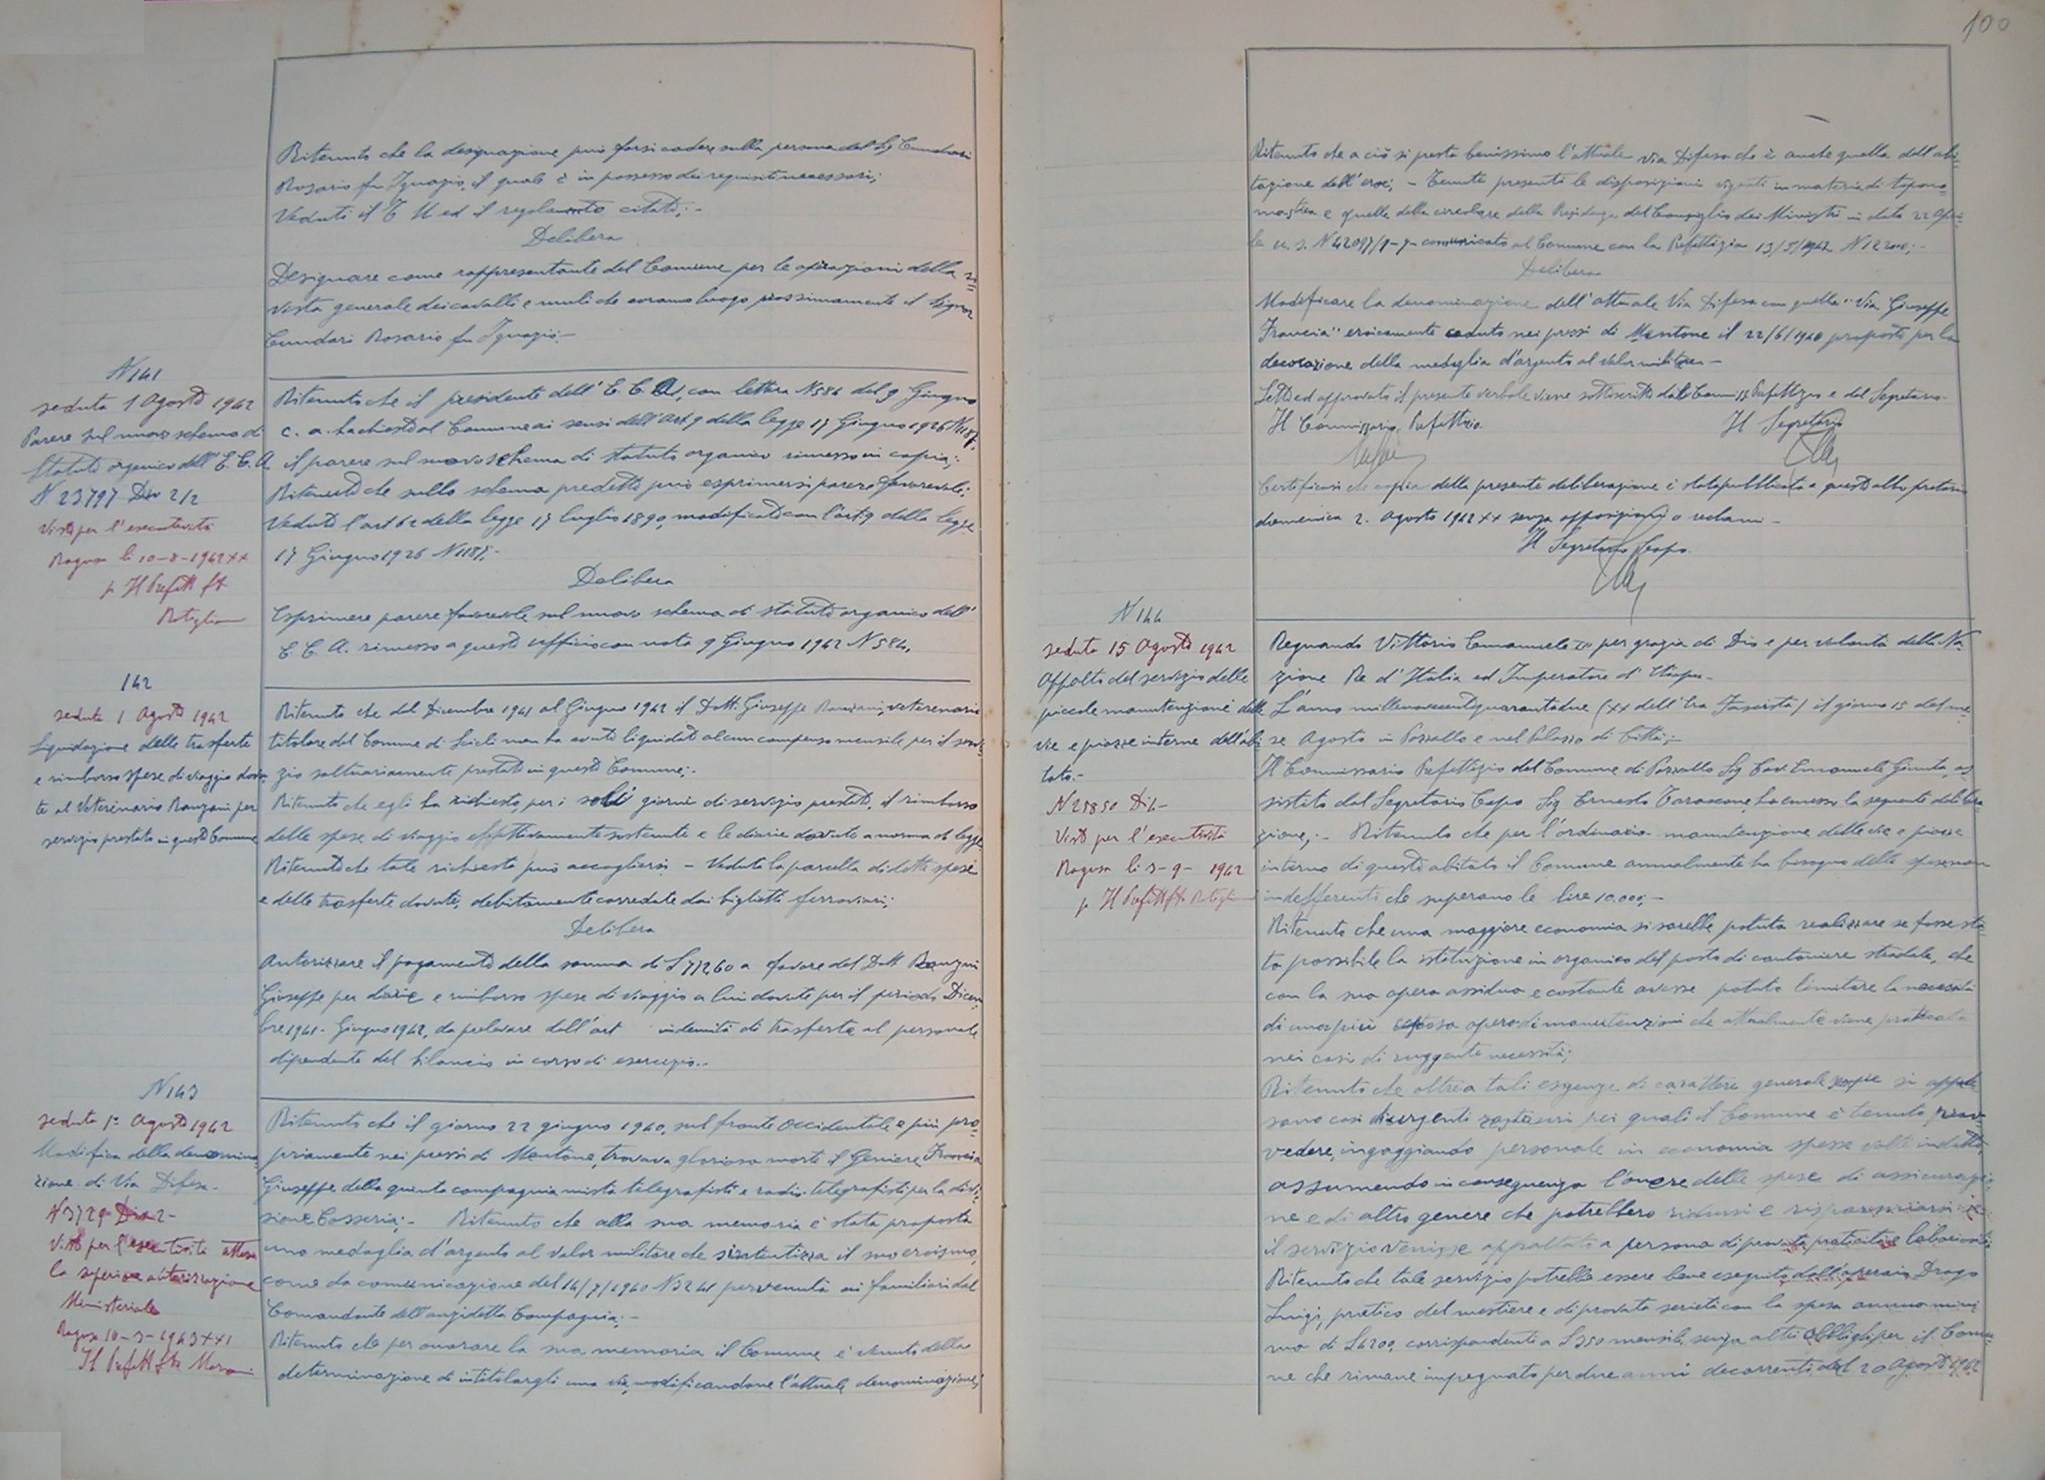 Ritenuto che la designazione può farsi cadere sulla persona del Sig Cundari
Rosario fu Ignazio, il quale è in possesso dei requisiti necessari;
Veduti il T U ed il regolamento citati;-
Delibera
Designare come rappresentante del Comune per le operazioni della ri=
vista generale dei cavalli e muli che avranno luogo prossimamente il Signor
Cundari Rosario fu Ignazio.-
N 141
seduta 1 Agosto 1942
Parere sul nuovo schema di
statuto organico dell'E.C.A.
N 23797 Div 2/2
Visto per l'esecutività
Ragusa li 10-8-1942 XX
p Il Prefetto ft
Ritenuto che il presidente dell'E.C.A, con lettera N 584 del 9 Giugno
c. a. ha chiesto al Comune ai sensi dell'art. 9 della legge 17 Giugno 1926 N 1187,
il parere sul nuovo schema di statuto organico rimesso in copia;
Ritenuto che sullo schema predetto può esprimersi parere favorevole;
Veduto l'art 62 della legge 17 luglio 1890, modificato con l'art. 9 della legge
17 Giugno 1926 N 1187;-
Delibera
Esprimere parere favorevole sul nuovo schema di statuto organico dell'
E. C. A. rimesso a questo ufficio con nota 9 Giugno 1942 N 584.
142
seduta 1 Agosto 1942
Liquidazione delle trasferte
e rimborso spese di viaggio dovu
te al Veterinario Ranzani per
servizio prestato in questo Comune
Ritenuto che dal Dicembre 1941 al Giugno 1942 il Dott. Giuseppe Ranzani, veterinario
titolare del Comune di Scicli non ha avuto liquidato alcun compenso mensile per il servi-
zio saltuariamente prestato in questo Comune;-
Ritenuto che egli ha richiesto, per i soli giorni di servizio prestato, il rimborso
delle spese di viaggio effettivamente sostenute e le diarie dovute a norma di legge
Ritenuto che tale richiesta può accogliersi - Veduta la parcella di dette spese
e delle trasferte dovute, debitamente corredate dai biglietti ferroviari;
Delibera
Autorizzare il pagamento della somma di a favore del Dott Ranzani
Giuseppe per diarie e rimborso spese di viaggio a lui dovute per il periodo Dicem
bre 1941 - Giugno 1942, da prelevare dall'art indennità di trasferte al personale
dipendente del bilancio in corso di esercizio..
N 143
seduta 1° Agosto 1942
Modifica della denomina
zione di Via Difesa -
N 3729 Div 2-
Visto per l'esecutività attesa
la superiore autorizzazione
Ministeriale
Ragusa 10-3-1943 XXI
Il Prefetto
Ritenuto che il giorno 22 giugno 1940, sul fronte occidentale e più pro-
priamente nei pressi di Mentone, trovava gloriosa morte il Geniere Francia
Giuseppe della quinta compagnia mista telegrafisti e radio-telegrafisti per la divi-
sione Cosseria;- Ritenuto che alla sua memoria è stata proposta
una medaglia d'argento al valor militare che sintetizza il suo eroismo,
come da comunicazione del 14/7/1940 N 3241 pervenuta ai familiari dal
Comandante dell'anzidetta Compagnia;-
Ritenuto che per onorare la sua memoria il Comune è venuto della
determinazione di intitolargli una via, modificandone l'attuale denominazione;
100
Ritenuto che a ciò si presta benissimo l'attuale via Difesa che è anche quella dell'abi-
tazione dell'eroe; - Tenute presenti le disposizioni vigenti in materia di topono-
mastica e quelle della circolare della Presidenza del Consiglio dei Ministri in data 22 Apri-
le u. s. comunicato al Comune con la Prefettizia 13/5/1942
Delibera
Modificare la denominazione dell'attuale Via Difesa con quella "Via Giuseppe
Francia" eroicamente caduto nei pressi di Mentone il 22/6/1940 proposto per la
decorazione della medaglia d'argento al valor militare -
Letto ed approvato il presente verbale viene sottoscritto dal Commiss Prefettizio e dal Segretario.
Il Commissario Prefettizio
Il Segretario
Certificasi che copia della presente deliberazione è stata pubblicata a questo albo pretorio
domenica 2. Agosto 1942 XX senza opposizioni o reclami -
Il Segretario Capo.
N 144
seduta 15 Agosto 1942
Appalto del servizio delle
piccole manutenzioni delle
vie e piazze interne dell'abi
tato.-
N 25850
Visto per l'esecutività
Ragusa li 3-9-1942
p Il Prefetto ft
Regnando Vittorio Emanuele III per grazia di Dio e per volontà della Na-
zione Re d'Italia ed Imperatore d'Etiopia -
L'anno millenovecentoquarantadue (XX dell'Era Fascista) il giorno 15 del me-
se Agosto in Pozzallo e nel Palazzo di Città;-
Il Commissario Prefettizio del Comune di Pozzallo Sig Cav. Emanuele Giunta, as
sistito dal Segretario Capo Sig Ernesto Tarascone, ha emesso la seguente delibera
zione;- Ritenuto che per l'ordinaria manutenzione delle vie e piazze
interne di questo abitato il Comune annualmente ha bisogno delle spese non
indifferenti che superano le lire 10.000;-
Ritenuto che una maggiore economia si sarebbe potuta realizzare se fosse sta-
ta possibile la istituzione in organico del posto di cantoniere stradale, che
con la sua opera assidua e costante avesse potuto limitare la necessità
di una più costosa opera di manutenzioni che attualmente viene praticata
nei casi di urgente necessità;
Ritenuto che oltre a tali esigenze di carattere generale si appale
sano casi di urgenti per i quali il Comune è tenuto prov-
vedere, ingaggiando personale in economia spesse volte inadatto,
assumendo in conseguenza l'onere delle spese di assicurazio-
ne e di altro genere che potrebbero ridursi e risparmiarsi se
il servizio venisse appaltato a persona di provata praticità e laboriosità
Ritenuto che tale servizio potrebbe essere bene eseguito dall'operaio Drago
Luigi, pratico del mestiere e di provata serietà con la spesa annua mini
ma di L 4200, corrispondenti a L 350 mensili, senza altri obblighi per il Comu
ne che rimane impegnato per due anni decorrenti dal 20 Agosto 1942